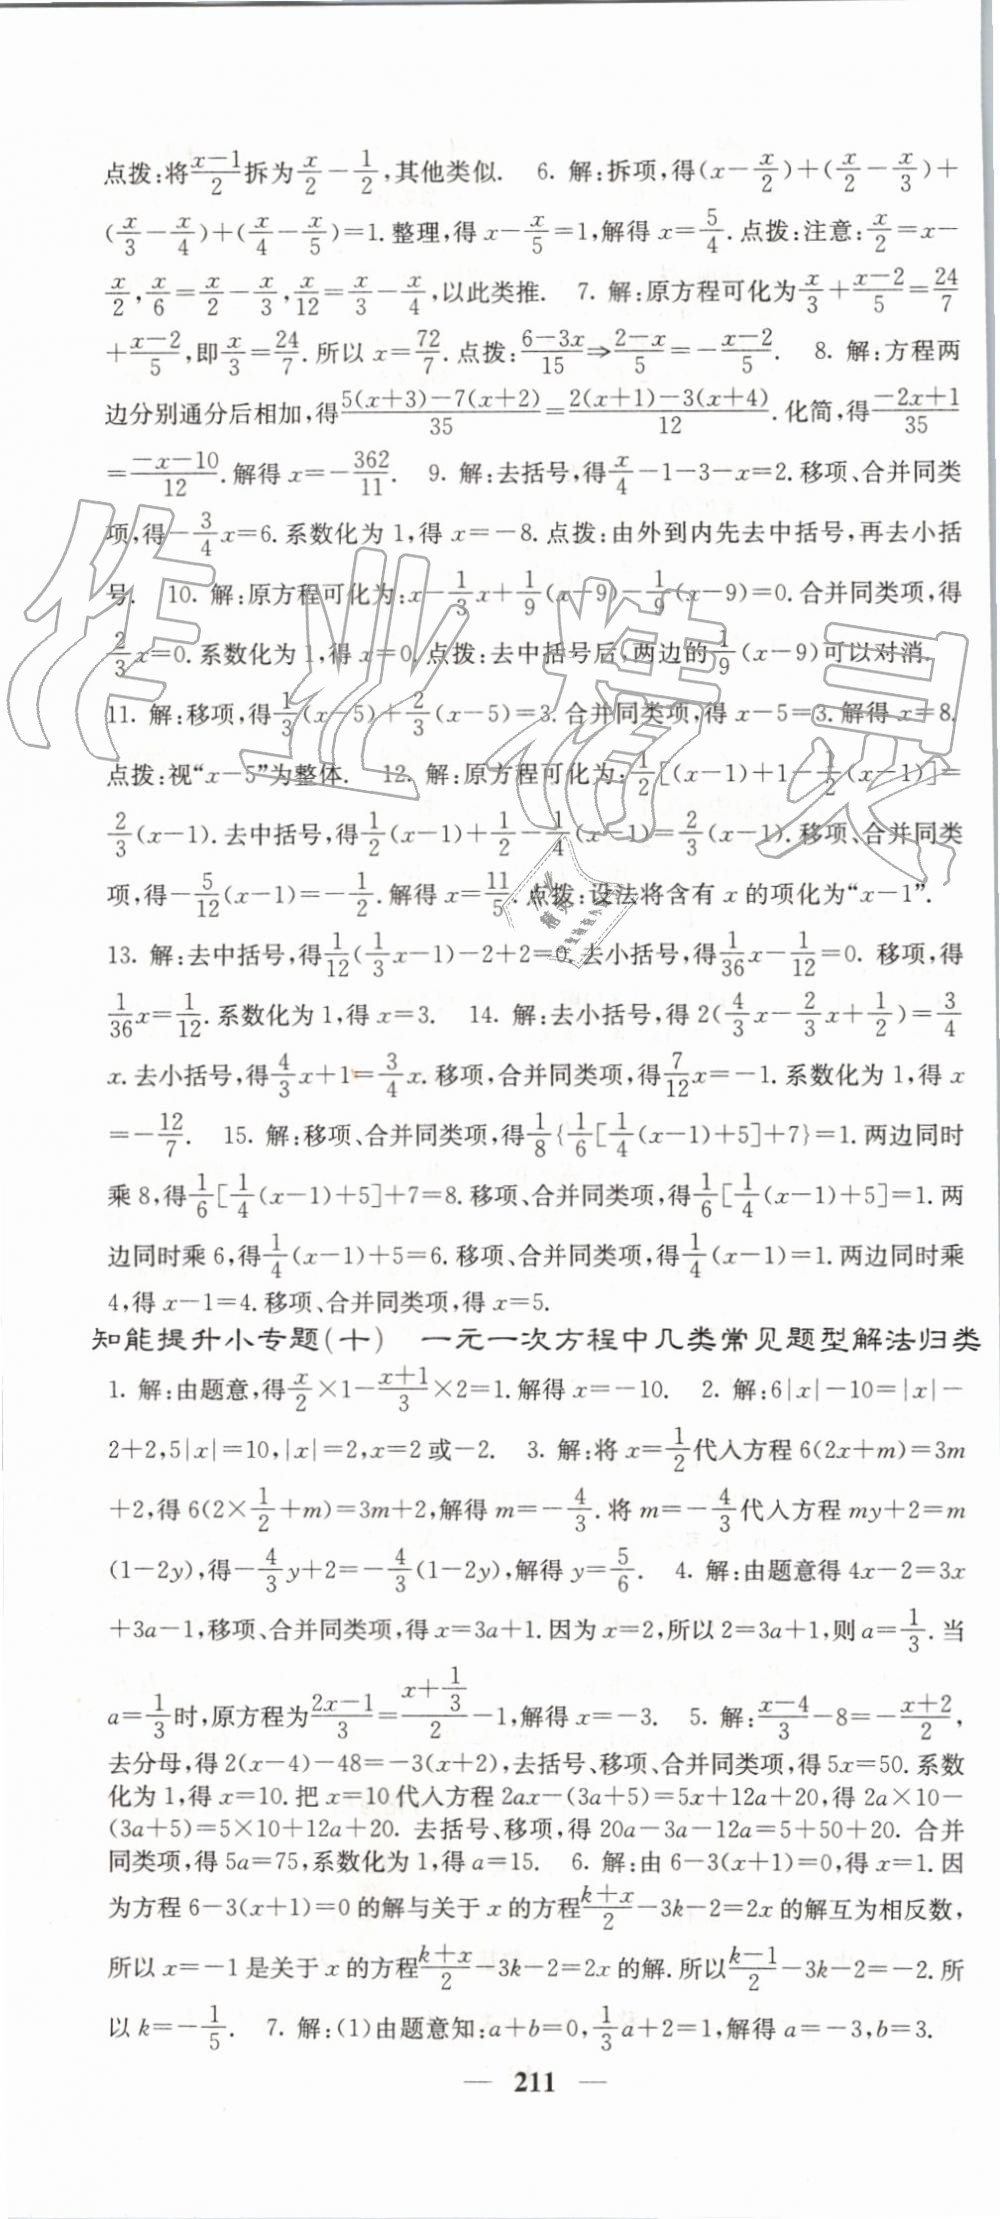 点拨:将\frac{x-1}{2}拆为\frac{x}{2}-\frac{1}{2},其他类似. 6. 解:拆项,得(x-\frac{x}{2})+(\frac{x}{2}-\frac{x}{3})+
(\frac{x}{3}-\frac{x}{4})+(\frac{x}{4}-\frac{x}{5})=1.整理,得 x-\frac{x}{5}=1,解得 x=\frac{5}{4}.点拨:注意:\frac{x}{2}=x-
\frac{x}{2},\frac{x}{6}=\frac{x}{2}-\frac{x}{3},\frac{x}{12}=\frac{x}{3}-\frac{x}{4},以此类推. 7. 解:原方程可化为\frac{x}{3}+\frac{x-2}{5}=\frac{24}{7}
+\frac{x-2}{5},即\frac{x}{3}=\frac{24}{7}.所以 x=\frac{72}{7}.点拨:\frac{6-3x}{15}⇒\frac{2-x}{5}=-\frac{x-2}{5}. 8. 解:方程两
边分别通分后相加,得\frac{5(x+3)-7(x+2)}{35}=\frac{2(x+1)-3(x+4)}{12}.化简,得\frac{-2x+1}{35}
=\frac{-x-10}{12}.解得 x=-\frac{362}{11}. 9. 解:去括号,得\frac{x}{4}-1-3-x=2.移项、合并同类
项,得-\frac{3}{4}x=6.系数化为 1,得 x=-8.点拨:由外到内先去中括号,再去小括
号. 10. 解:原方程可化为:x-\frac{1}{3}x+\frac{1}{9}(x-9)-\frac{1}{9}(x-9)=0.合并同类项,得
\frac{2}{3}x=0.系数化为 1,得 x=0.点拨:去中括号后,两边的\frac{1}{9}(x-9)可以对消.
11. 解:移项,得\frac{1}{3}(x-5)+\frac{2}{3}(x-5)=3.合并同类项,得 x-5=3.解得 x=8.
点拨:视“x-5”为整体. 12. 解:原方程可化为:\frac{1}{2}[(x-1)+1-\frac{1}{2}(x-1)]=
\frac{2}{3}(x-1).去中括号,得\frac{1}{2}(x-1)+\frac{1}{2}-\frac{1}{4}(x-1)=\frac{2}{3}(x-1).移项、合并同类
项,得-\frac{5}{12}(x-1)=-\frac{1}{2}.解得 x=\frac{11}{5}.点拨:设法将含有 x 的项化为“x-1”.
13. 解:去中括号,得\frac{1}{12}(\frac{1}{3}x-1)-2+2=0.去小括号,得\frac{1}{36}x-\frac{1}{12}=0. 移项,得
\frac{1}{36}x=\frac{1}{12}.系数化为 1,得 x=3. 14. 解:去小括号,得 2(\frac{4}{3}x-\frac{2}{3}x+\frac{1}{2})=\frac{3}{4}
x.去小括号,得\frac{4}{3}x+1=\frac{3}{4}x.移项,合并同类项,得\frac{7}{12}x=-1.系数化为 1,得 x
=-\frac{12}{7}. 15. 解:移项、合并同类项,得\frac{1}{8}{\frac{1}{6}[\frac{1}{4}(x-1)+5]+7}=1.两边同时
乘 8,得\frac{1}{6}[\frac{1}{4}(x-1)+5]+7=8.移项、合并同类项,得\frac{1}{6}[\frac{1}{4}(x-1)+5]=1.两
边同时乘 6,得\frac{1}{4}(x-1)+5=6.移项、合并同类项,得\frac{1}{4}(x-1)=1.两边同时乘
4,得 x-1=4.移项、合并同类项,得 x=5.
知能提升小专题(十) 一元一次方程中几类常见题型解法归类
1. 解:由题意,得\frac{x}{2}×1-\frac{x+1}{3}×2=1.解得 x=-10. 2. 解:6|x|-10=|x|-
2+2,5|x|=10,|x|=2,x=2 或-2. 3. 解:将 x=\frac{1}{2}代入方程 6(2x+m)=3m
+2,得 6(2×\frac{1}{2}+m)=3m+2,解得 m=-\frac{4}{3}.将 m=-\frac{4}{3}代入方程 my+2=m
(1-2y),得-\frac{4}{3}y+2=-\frac{4}{3}(1-2y),解得 y=\frac{5}{6}. 4. 解:由题意得 4x-2=3x
+3a-1,移项、合并同类项,得 x=3a+1.因为 x=2,所以 2=3a+1,则 a=\frac{1}{3}.当
a=\frac{1}{3}时,原方程为\frac{2x-1}{3}=\frac{x+\frac{1}{3}}{2}-1,解得 x=-3. 5. 解:\frac{x-4}{3}-8=-\frac{x+2}{2},
去分母,得 2(x-4)-48=-3(x+2),去括号、移项、合并同类项,得 5x=50.系数
化为 1,得 x=10.把 x=10 代入方程 2ax-(3a+5)=5x+12a+20,得 2a×10-
(3a+5)=5×10+12a+20. 去括号、移项,得 20a-3a-12a=5+50+20. 合并
同类项,得 5a=75,系数化为 1,得 a=15. 6. 解:由 6-3(x+1)=0,得 x=1.因
为方程 6-3(x+1)=0 的解与关于 x 的方程\frac{k+x}{2}-3k-2=2x 的解互为相反数,
所以 x=-1 是关于 x 的方程\frac{k+x}{2}-3k-2=2x 的解.所以\frac{k-1}{2}-3k-2=-2.所
以 k=-\frac{1}{5}. 7. 解:(1)由题意知:a+b=0,\frac{1}{3}a+2=1,解得 a=-3,b=3.
— 211 —
作业精灵